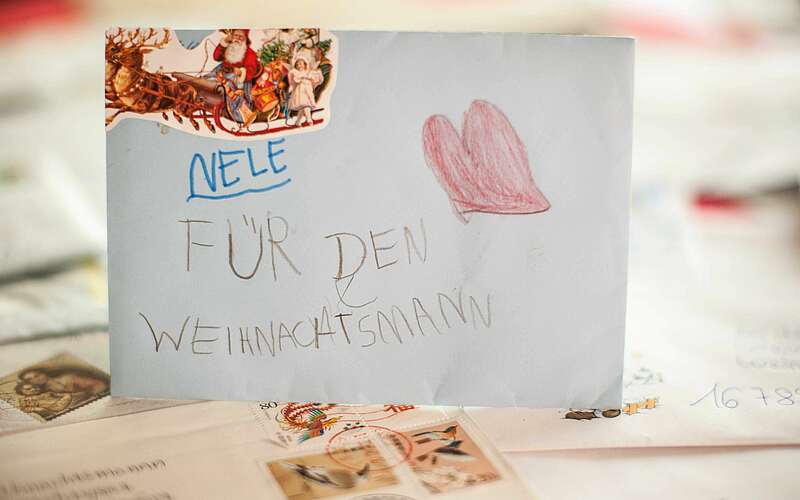 NELE
FÜR DEN
WEIHNACHTSMANN
80
16 789